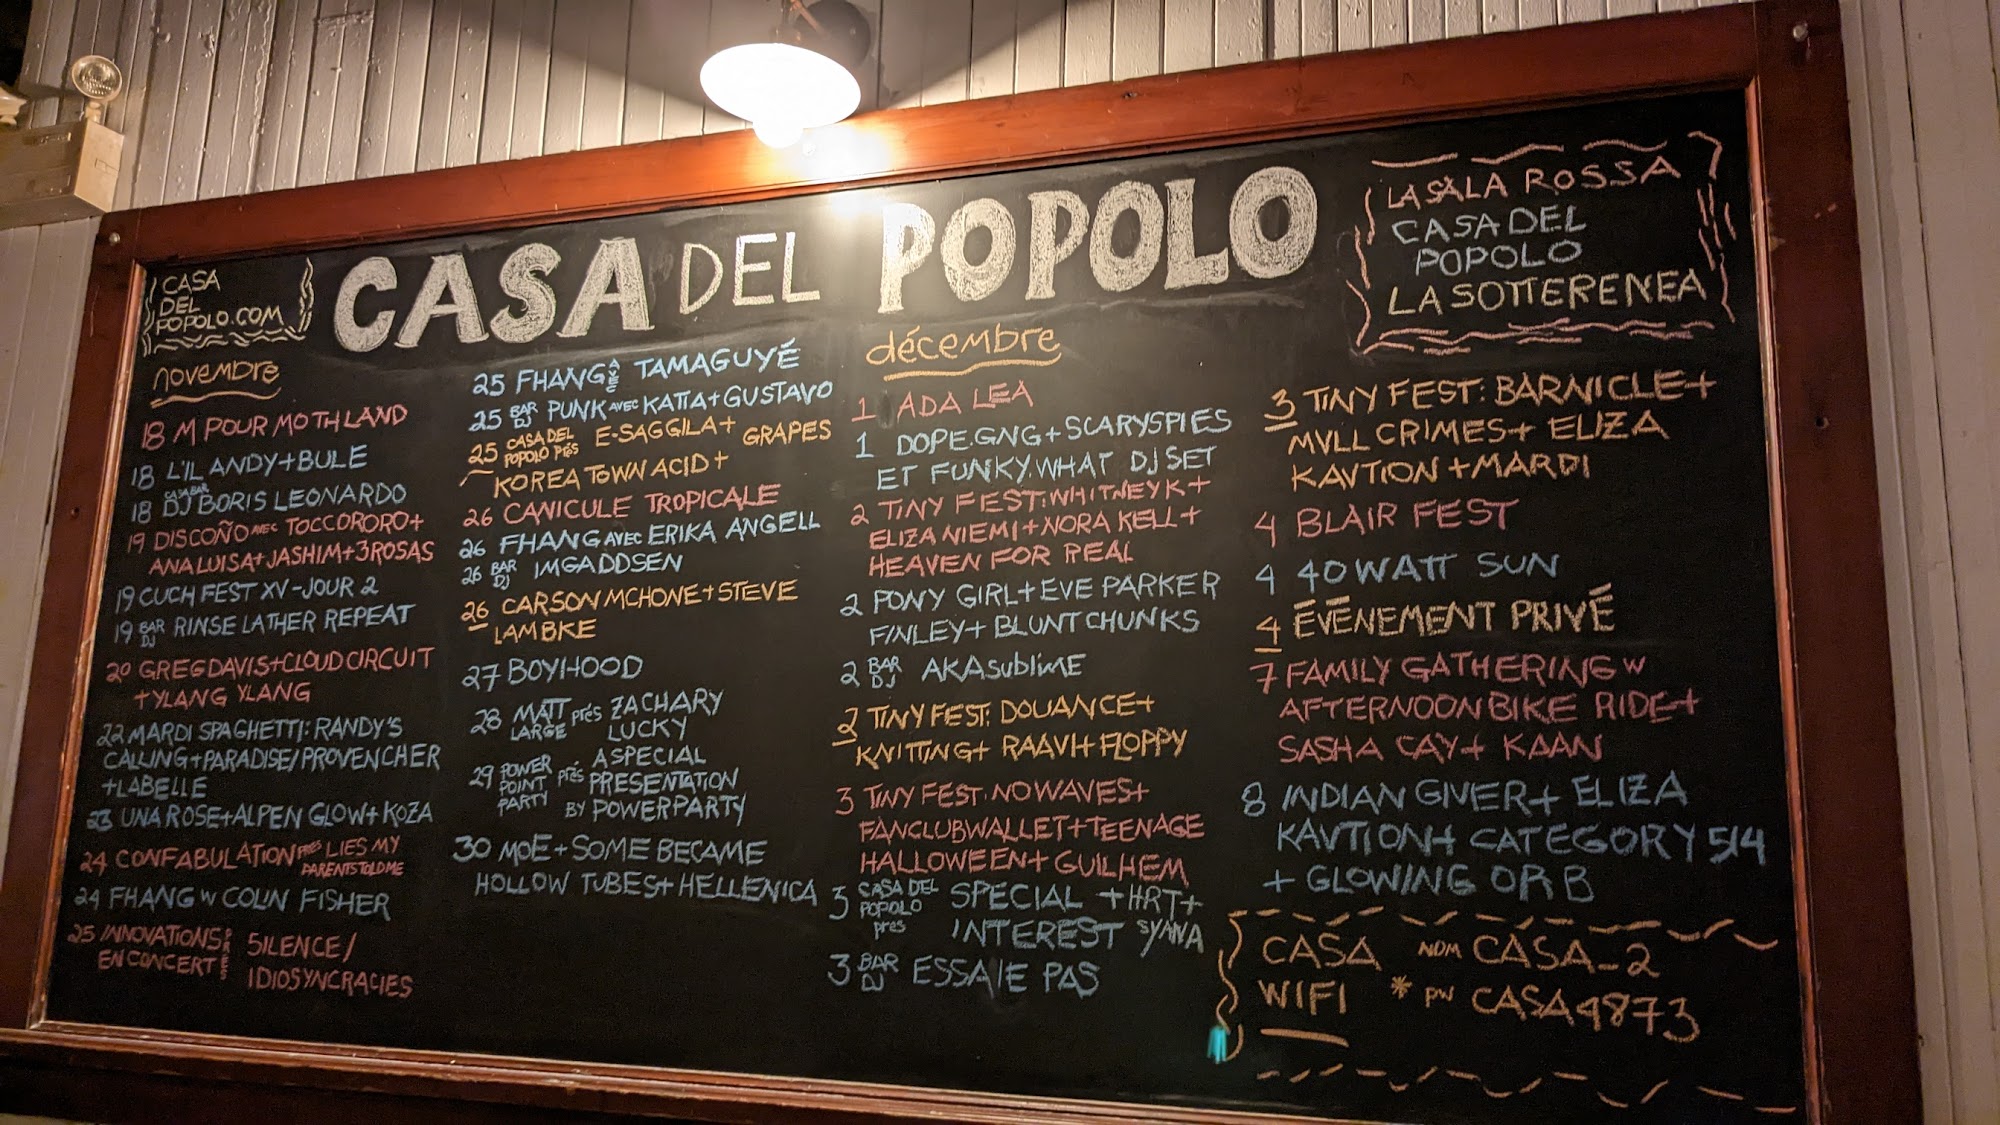 CASA
DEL
POPOLO.COM
CASA DEL POPOLO
LA SALA ROSSA
CASA DEL
POPOLO
LA SOTTERENEA
novembre
18 M POUR MOTHLAND
18 L'IL ANDY + BULE
18 CASA BAR DJ BORIS LEONARDO
19 DISCOÑO AVEC TOCCORORO +
ANA LUISA + JASHIM + 3 ROSAS
19 CUCH FEST XV - JOUR 2
19 BAR DJ RINSE LATHER REPEAT
20 GREG DAVIS + CLOUD CIRCUIT
+ YLANG YLANG
22 MARDI SPAGHETTI: RANDY'S
CALLING + PARADISE/PROVENCHER
+ LABELLE
23 UNA ROSE + ALPEN GLOW + KOZA
24 CONFABULATION PRÉS LIES MY
PARENTS TOLD ME
24 FHANG W COLIN FISHER
25 INNOVATIONS EN CONCERT PRES SILENCE/
IDIOSYNCRACIES
25 FHANG AVEC TAMAGUYÉ
25 BAR DJ PUNK AVEC KATIA + GUSTAVO
25 CASA DEL POPOLO PRÉS E-SAGGILA + GRAPES
KOREA TOWN ACID +
26 CANICULE TROPICALE
26 FHANG AVEC ERIKA ANGELL
26 BAR DJ IMGADDSEN
26 CARSON MCHONE + STEVE
LAMBKE
27 BOYHOOD
28 MATT LARGE prés ZACHARY
LUCKY
29 POWER POINT PARTY PRÉS A SPECIAL
PRESENTATION
BY POWERPARTY
30 MOE + SOME BECAME
HOLLOW TUBES + HELLENICA
décembre
1 ADA LEA
1 DOPE.GNG + SCARYSPIES
ET FUNKY.WHAT DJ SET
2 TINY FEST: WHITNEY K +
ELIZA NIEMI + NORA KELL +
HEAVEN FOR REAL
2 PONY GIRL + EVE PARKER
FINLEY + BLUNT CHUNKS
2 BAR DJ AKAsublime
2 TINY FEST: DOUANCE +
KNITTING + RAAVI + FLOPPY
3 TINY FEST: NO WAVES +
FANCLUBWALLET + TEENAGE
HALLOWEEN + GUILHEM
3 CASA DEL POPOLO pres SPECIAL + HRT +
INTEREST SYANA
3 BAR DJ ESSAIE PAS
3 TINY FEST: BARNICLE +
MVLL CRIMES + ELIZA
KAVTION + MARDI
4 BLAIR FEST
4 40 WATT SUN
4 ÉVÉNEMENT PRIVÉ
7 FAMILY GATHERING W
AFTERNOON BIKE RIDE +
SASHA CAY + KAAN
8 INDIAN GIVER + ELIZA
KAVTION + CATEGORY 514
+ GLOWING ORB
CASA NOM CASA_2
WIFI * PW CASA4873